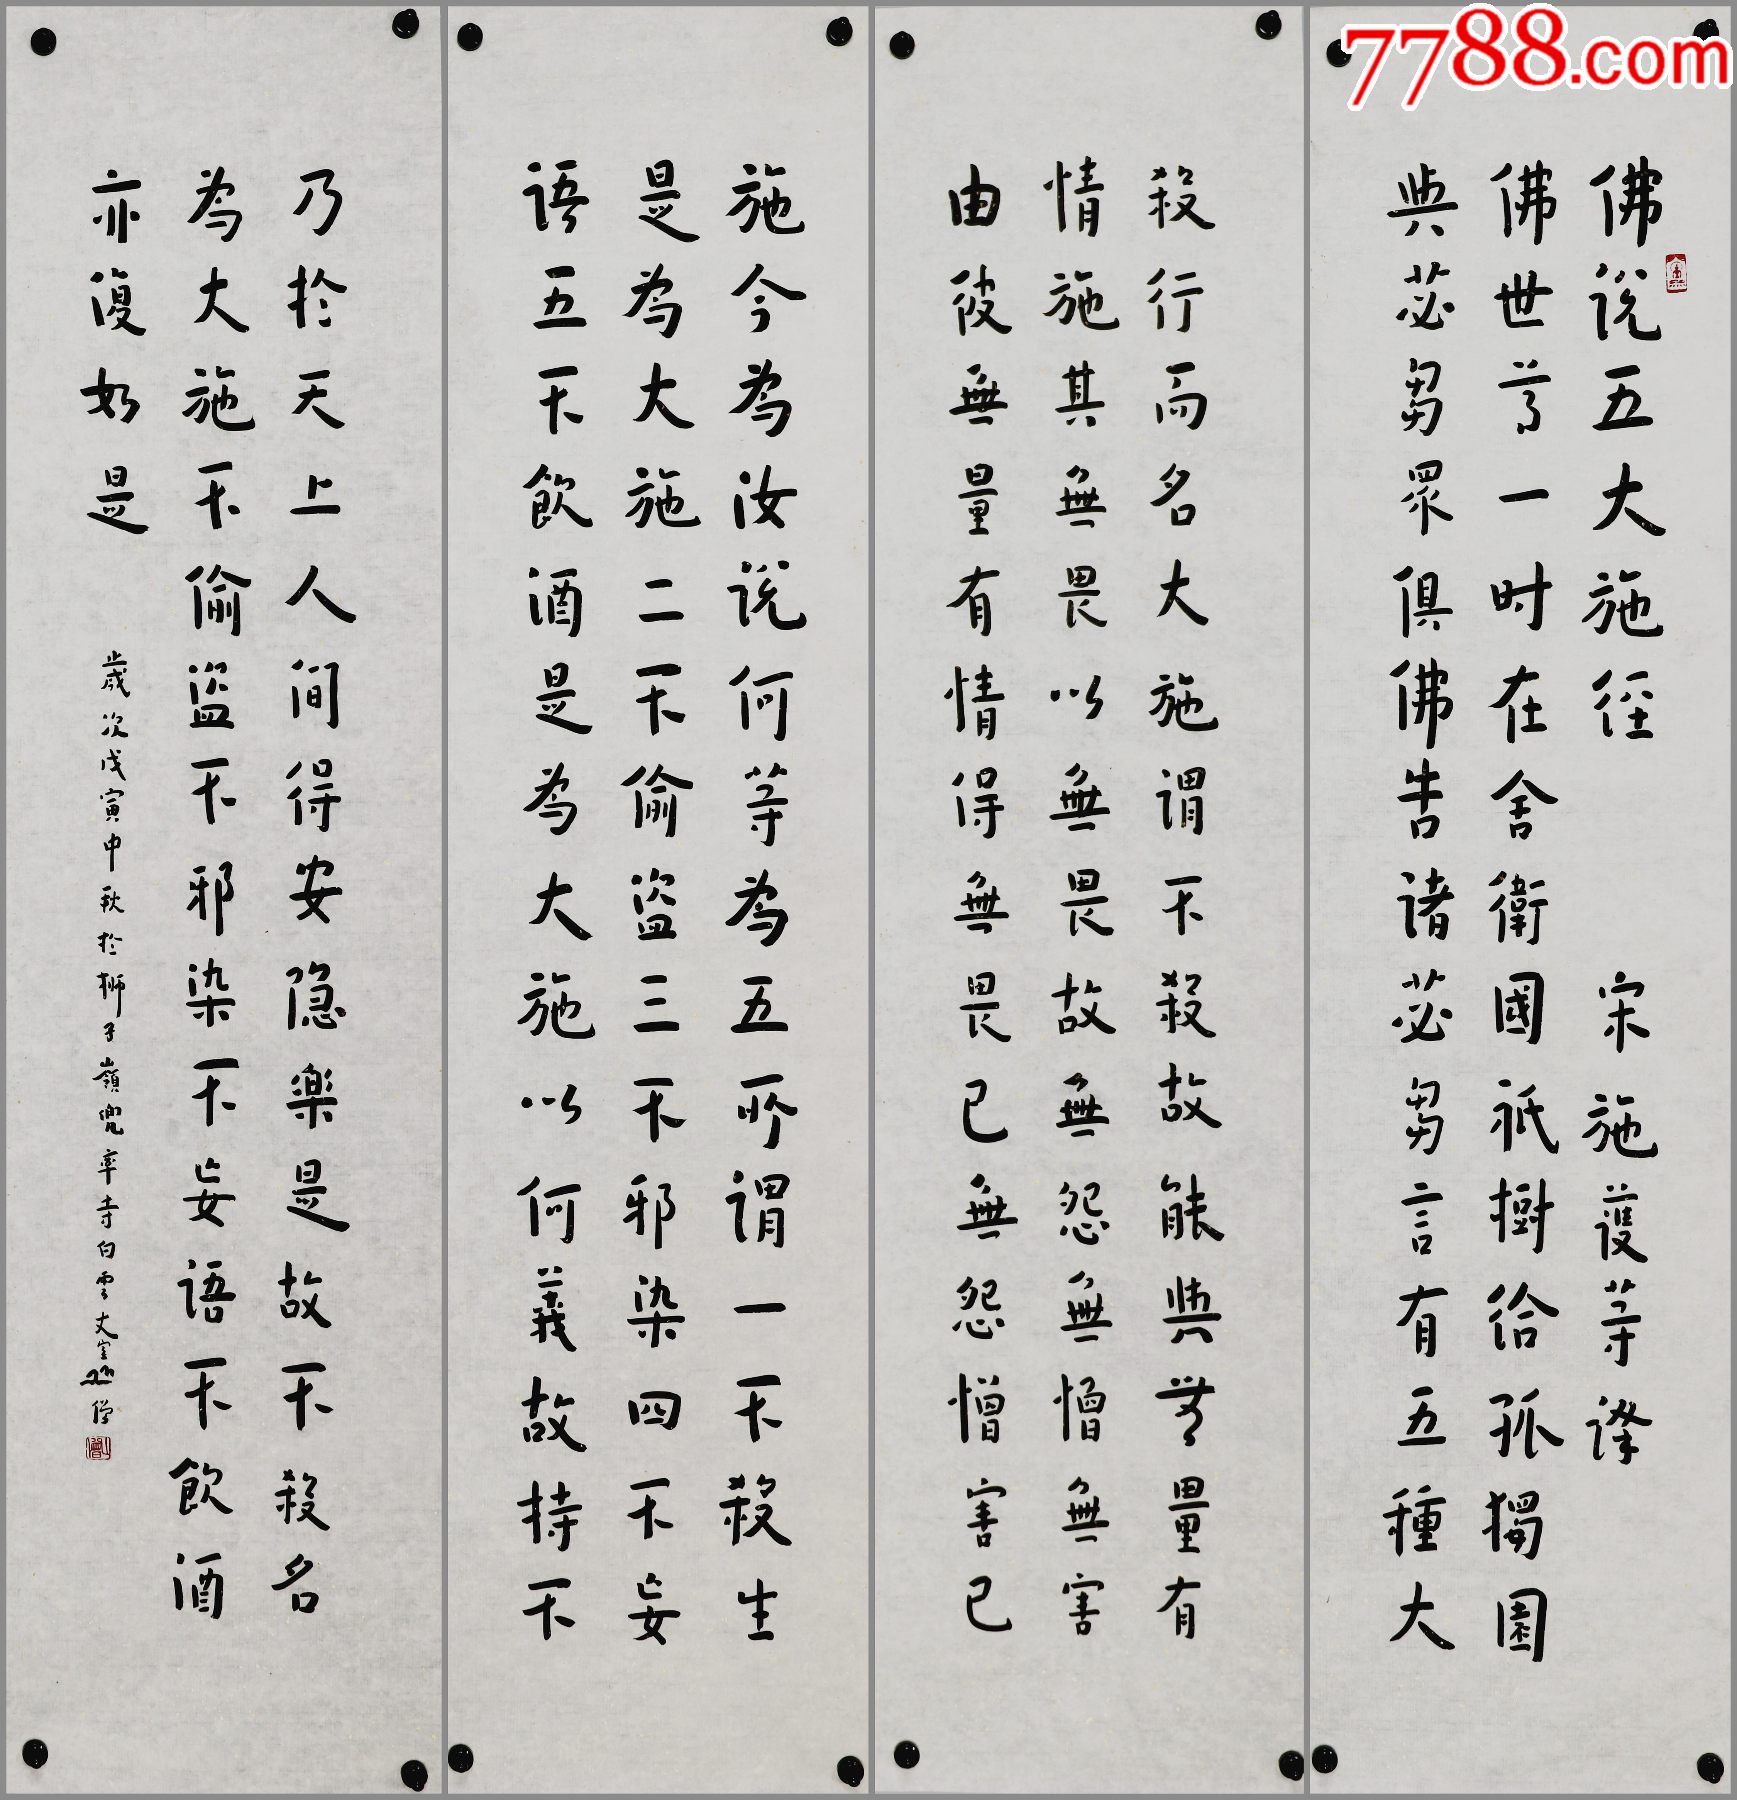 7788.com
佛说五大施經 宋 施護等譯
佛世尊一时在舍衛國祇樹给孤獨園
與苾芻眾俱佛告诸苾芻言有五種大
殺行而名大施谓不殺故能與無量有
情施其無畏以無畏故無怨無憎無害
由彼無量有情得無畏已無怨憎害已
施今為汝说何等為五所谓一不殺生
是為大施二不偷盜三不邪染四不妄
语五不飲酒是為大施以何義故持不
乃於天上人间得安隐樂是故不殺名
為大施不偷盜不邪染不妄语不飲酒
亦復如是
歲次戊寅中秋於獅子嶺兜率寺白雲丈室 僧